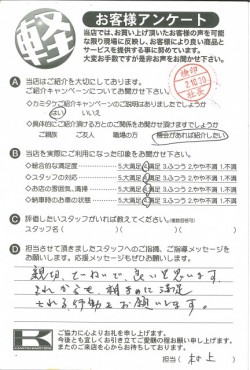 軽
お客様アンケート
当店では、お買い上げ頂いたお客様の声を可能
な限り現場に反映し、お客様により良い商品と
サービスを提供する事に努めています。
大変お手数ですが是非お声をお聞かせ下さい。
A 当店はご紹介を大切にしております。
ご紹介キャンペーンについてお聞かせ下さい。
◇カミタケご紹介キャンペーンのご説明はありましたでしょうか
はい いいえ
◇具体的にご紹介頂ける方とのご関係をお聞かせ頂けますでしょうか
ご親族 ご友人 職場の方 機会があれば紹介したい
B 当店を実際にご利用になった印象をお聞かせ下さい。
◇総合的な満足度 5大満足 4満足 3ふつう 2やや不満 1不満
◇スタッフの対応 5大満足 4満足 3ふつう 2やや不満 1不満
◇お店の雰囲気、清掃 5大満足 4満足 3ふつう 2やや不満 1不満
◇納車時のお車の状態 5大満足 4満足 3ふつう 2やや不満 1不満
C 評価したいスタッフがいれば教えてください。(複数回答可)
スタッフ名( ) ( )
D 担当させて頂きましたスタッフへのご指摘、ご指導メッセージを
お願いします。応援メッセージもぜひお願いします。
親切、てーねいで、良いと思います。
これからも、相手の方に満足
される行動をお願いします。
K
ご協力に心よりお礼を申し上げます。
今後とも宜しくお引き立てご愛顧の程お願い申し上げます。
またのご来店を心からお待ちしております。
担当( 村上 )